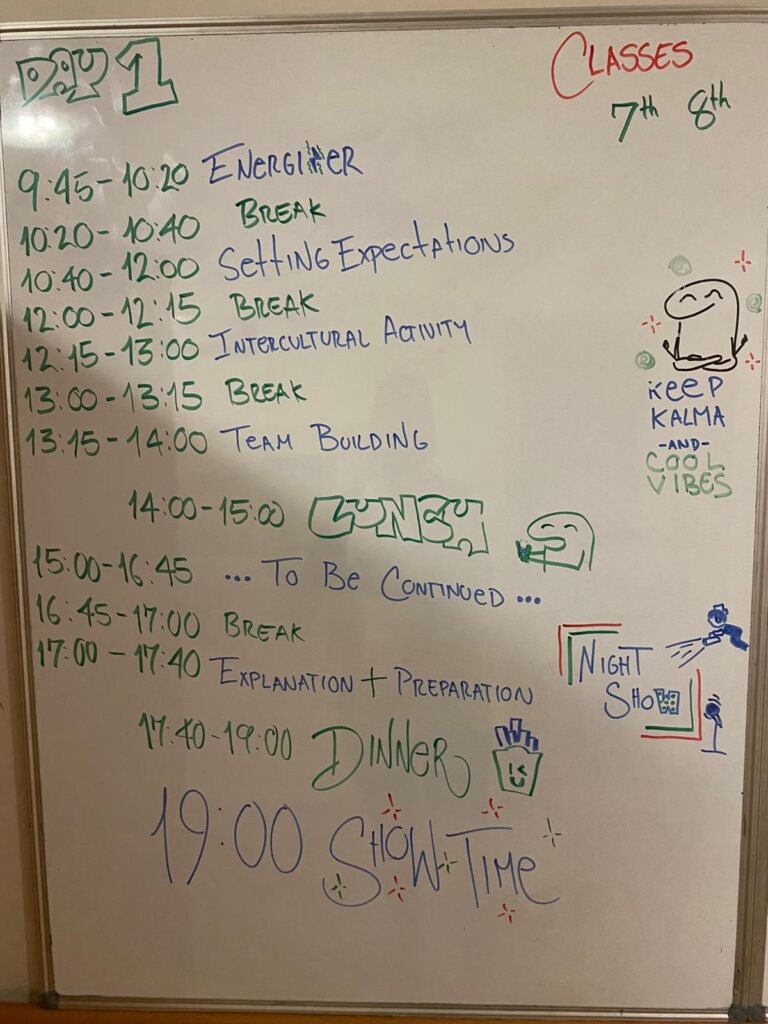 DAY 1
CLASSES
7th 8th
9:45-10:20 ENERGIZER
10:20-10:40 BREAK
10:40-12:00 SETTING EXPECTATIONS
12:00-12:15 BREAK
12:15-13:00 INTERCULTURAL ACTIVITY
13:00-13:15 BREAK
13:15-14:00 TEAM BUILDING
KEEP
KALMA
-AND-
COOL
VIBES
14:00-15:00 LUNCH
15:00-16:45 ... TO BE CONTINUED ...
16:45-17:00 BREAK
17:00-17:40 EXPLANATION + PREPARATION
NIGHT
SHOW
17:40-19:00 DINNER
19:00 SHOW TIME